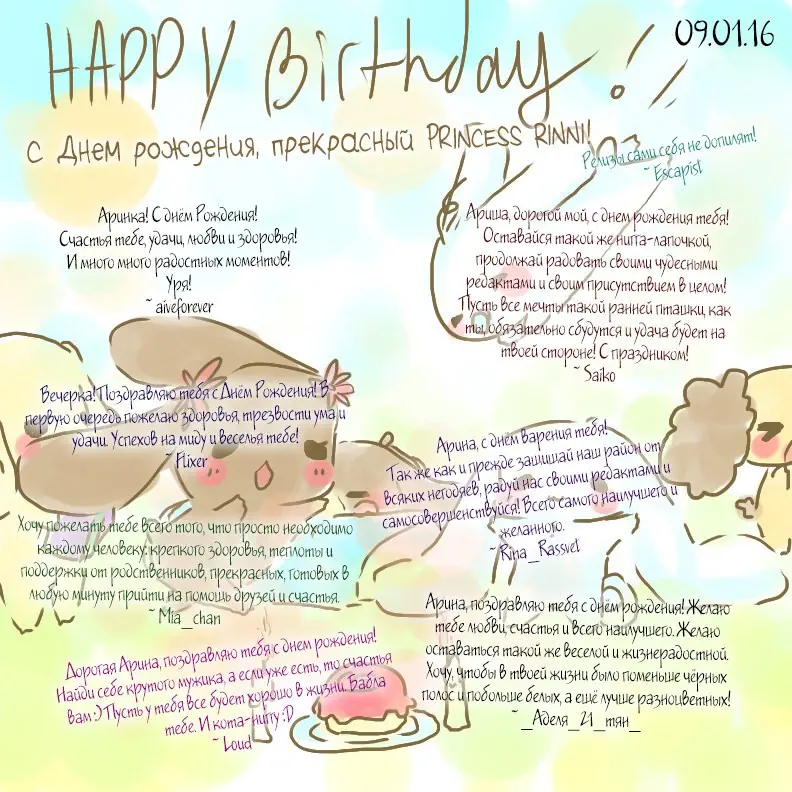 HAPPY Birthday!
09.01.16
С Днем рождения, прекрасный PRINCESS RINNI!
Релизы сами себя не допилят!
~ Escapist
Аринка! С днём Рождения!
Счастья тебе, удачи, любви и здоровья!
И много много радостных моментов!
Уря!
~ aiveforever
Ариша, дорогой мой, с днем рождения тебя!
Оставайся такой же нигга-лапочкой,
продолжай радовать своими чудесными
редактами и своим присутствием в целом!
Пусть все мечты такой ранней пташки, как
ты, обязательно сбудутся и удача будет на
твоей стороне! С праздником!
~ Saiko
Вечерка! Поздравляю тебя с Днём Рождения! В
первую очередь пожелаю здоровья, трезвости ума и
удачи. Успехов на миду и веселья тебе!
~ Flixer
Арина, с днём варения тебя!
Так же как и прежде защищай наш район от
всяких негодяев, радуй нас своими редактами и
самосовершенствуйся! Всего самого наилучшего и
желанного.
~ Rina_Rassvet
Хочу пожелать тебе всего того, что просто необходимо
каждому человеку: крепкого здоровья, теплоты и
поддержки от родственников, прекрасных, готовых в
любую минуту прийти на помощь друзей и счастья.
~ Mia_chan
Арина, поздравляю тебя с днём рождения! Желаю
тебе любви, счастья и всего наилучшего. Желаю
оставаться такой же веселой и жизнерадостной.
Хочу, чтобы в твоей жизни было поменьше чёрных
полос и побольше белых, а ещё лучше разноцветных!
~ _Аделя_21_тян_
Дорогая Арина, поздравляю тебя с днем рождения!
Найди себе крутого мужика, а если уже есть, то счастья
вам :) Пусть у тебя все будет хорошо в жизни. Бабла
тебе. И кота-нигу :D
~ Loud